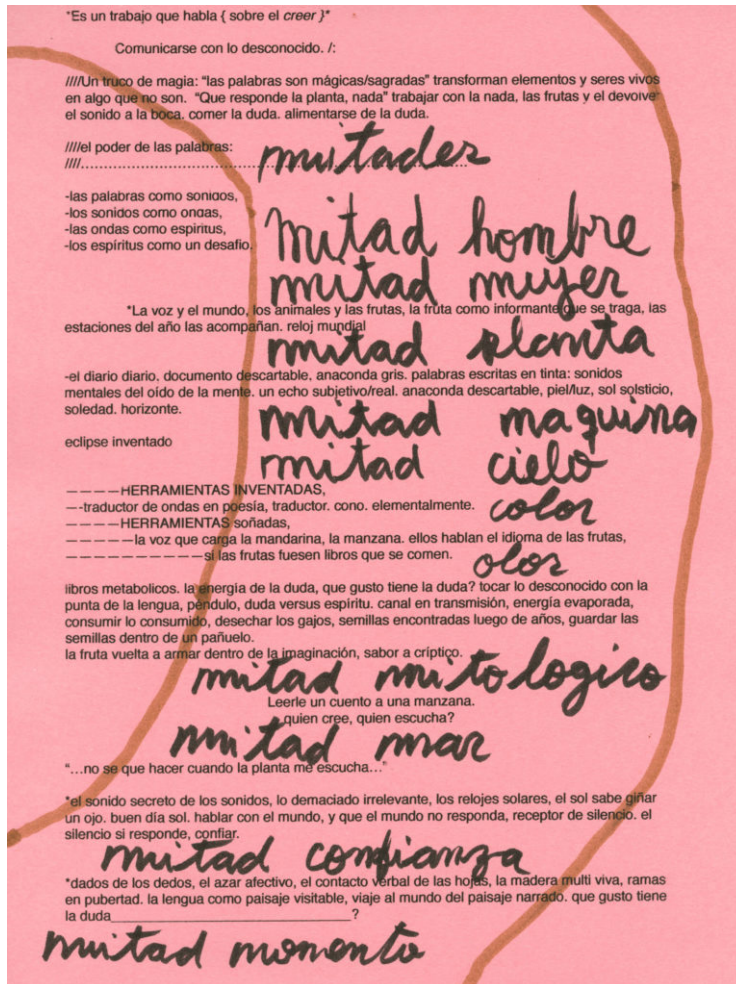 *Es un trabajo que habla { sobre el creer }*
Comunicarse con lo desconocido. /:
////Un truco de magia: “las palabras son mágicas/sagradas” transforman elementos y seres vivos
en algo que no son. “Que responde la planta, nada” trabajar con la nada, las frutas y el devolver
el sonido a la boca. comer la duda. alimentarse de la duda.
////el poder de las palabras:
////.......................................................................................
mitades
-las palabras como sonidos,
-los sonidos como ondas,
-las ondas como espiritus,
-los espíritus como un desafio.
mitad hombre
mitad mujer
*La voz y el mundo, los animales y las frutas, la fruta como informante que se traga, las
estaciones del año las acompañan. reloj mundial
mitad planta
-el diario diario. documento descartable, anaconda gris. palabras escritas en tinta: sonidos
mentales del oído de la mente. un echo subjetivo/real. anaconda descartable, piel/luz, sol solsticio,
soledad. horizonte.
mitad maquina
eclipse inventado
mitad cielo
————HERRAMIENTAS INVENTADAS,
—-traductor de ondas en poesía, traductor. cono. elementalmente.
color
————HERRAMIENTAS soñadas,
—————la voz que carga la mandarina, la manzana. ellos hablan el idioma de las frutas,
——————————si las frutas fuesen libros que se comen.
olor
libros metabolicos. la energía de la duda, que gusto tiene la duda? tocar lo desconocido con la
punta de la lengua, péndulo, duda versus espíritu. canal en transmisión, energía evaporada,
consumir lo consumido, desechar los gajos, semillas encontradas luego de años, guardar las
semillas dentro de un pañuelo.
la fruta vuelta a armar dentro de la imaginación, sabor a críptico.
mitad mitologico
Leerle un cuento a una manzana.
quien cree, quien escucha?
mitad mar
“...no se que hacer cuando la planta me escucha...”
*el sonido secreto de los sonidos, lo demaciado irrelevante, los relojes solares, el sol sabe giñar
un ojo. buen día sol. hablar con el mundo, y que el mundo no responda, receptor de silencio. el
silencio si responde, confiar.
mitad confianza
*dados de los dedos, el azar afectivo, el contacto verbal de las hojas, la madera multi viva, ramas
en pubertad. la lengua como paisaje visitable, viaje al mundo del paisaje narrado. que gusto tiene
la duda______________________________?
mitad momento